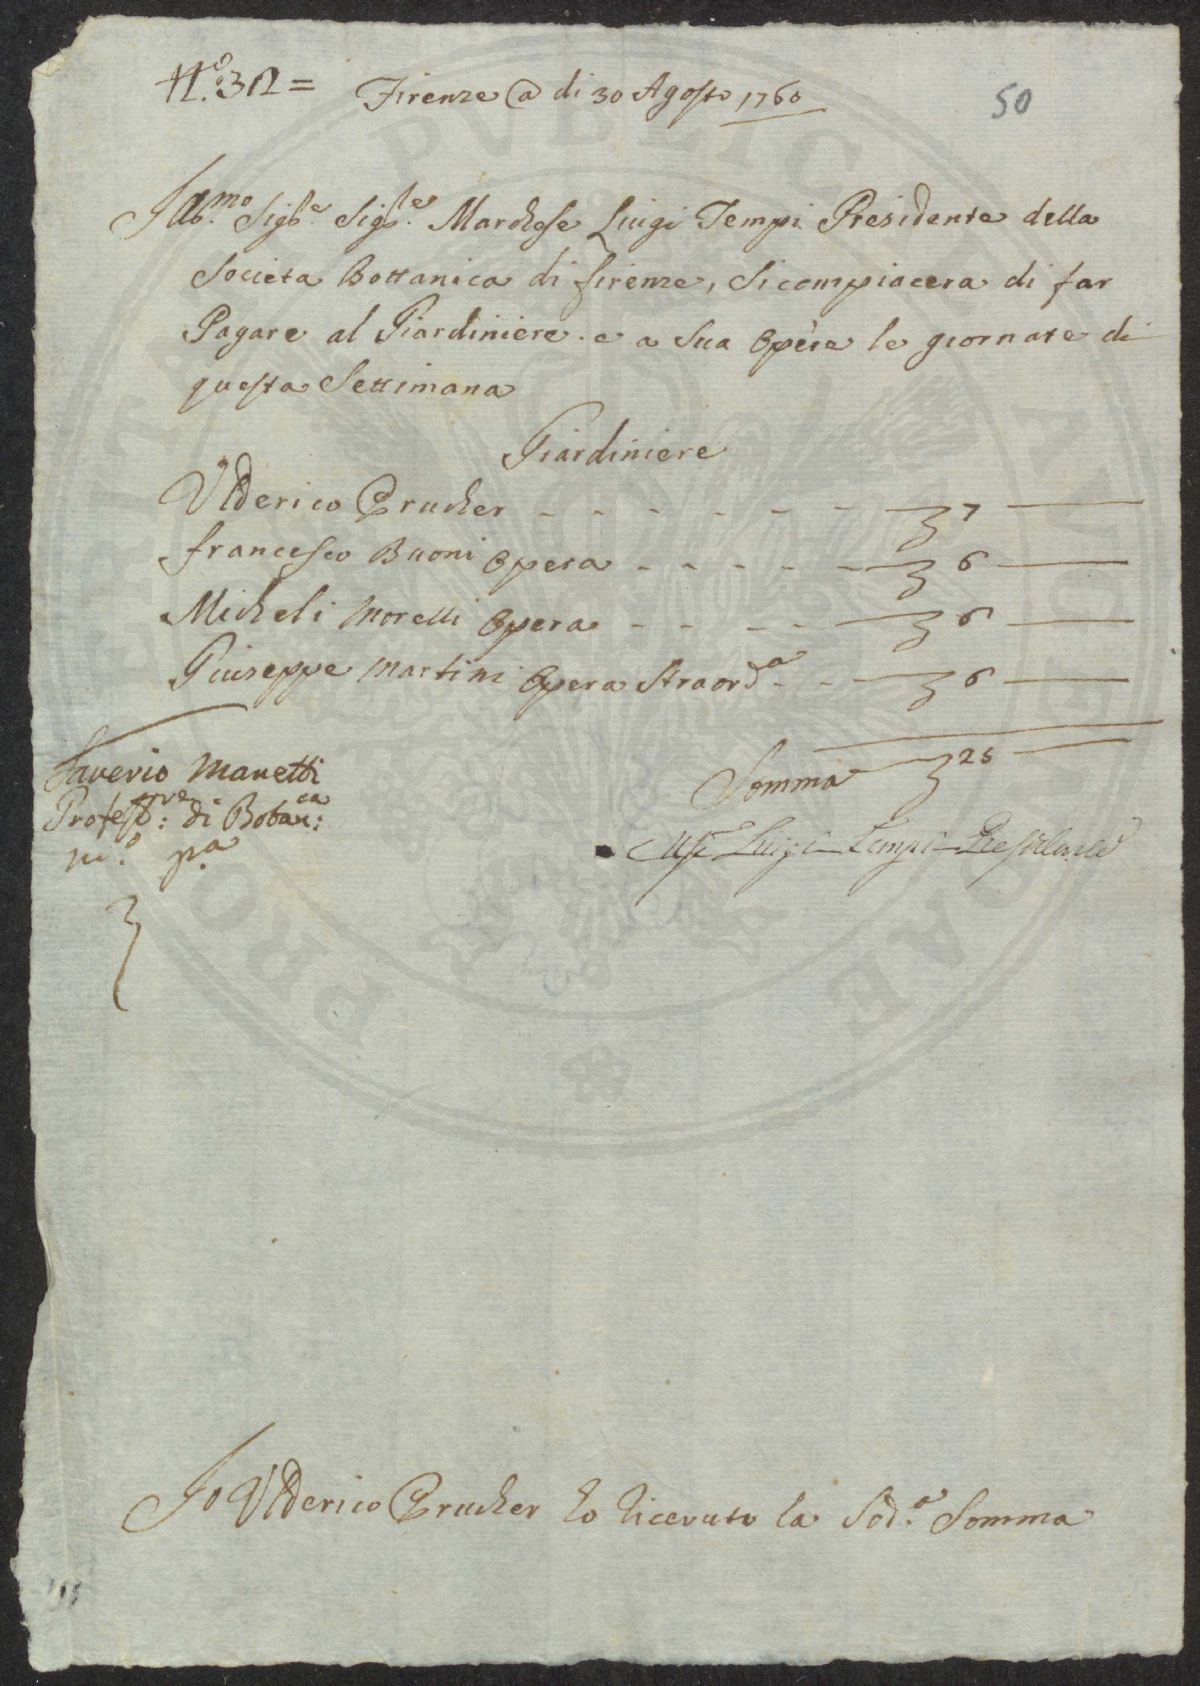 N.º 32 = Firenze @ di 30 Agosto 1760
50
Ill.mo Sig.re Sig.re Marchese Luigi Tempi Presidente della
Societa Bottanica di firenze, Si compiacera di far
Pagare al Giardiniere e a Sua Opere le giornate di
questa Settimana
Giardiniere
Ulderico Prucher - - - - - - 7 —
francesco Buoni Opera - - - - - 6 —
Micheli Morelli Opera - - - - 6 —
Giuseppe Martini Opera Straord.a - - 6 —
Somma 25 —
Saverio Manetti
Profess.re: di Botan:ca
m.o p.a
Luigi Tempi Presidente
Io Ulderico Prucher ho riceuuto la Sod.a Somma
PROPRIETAS PVBLICAE